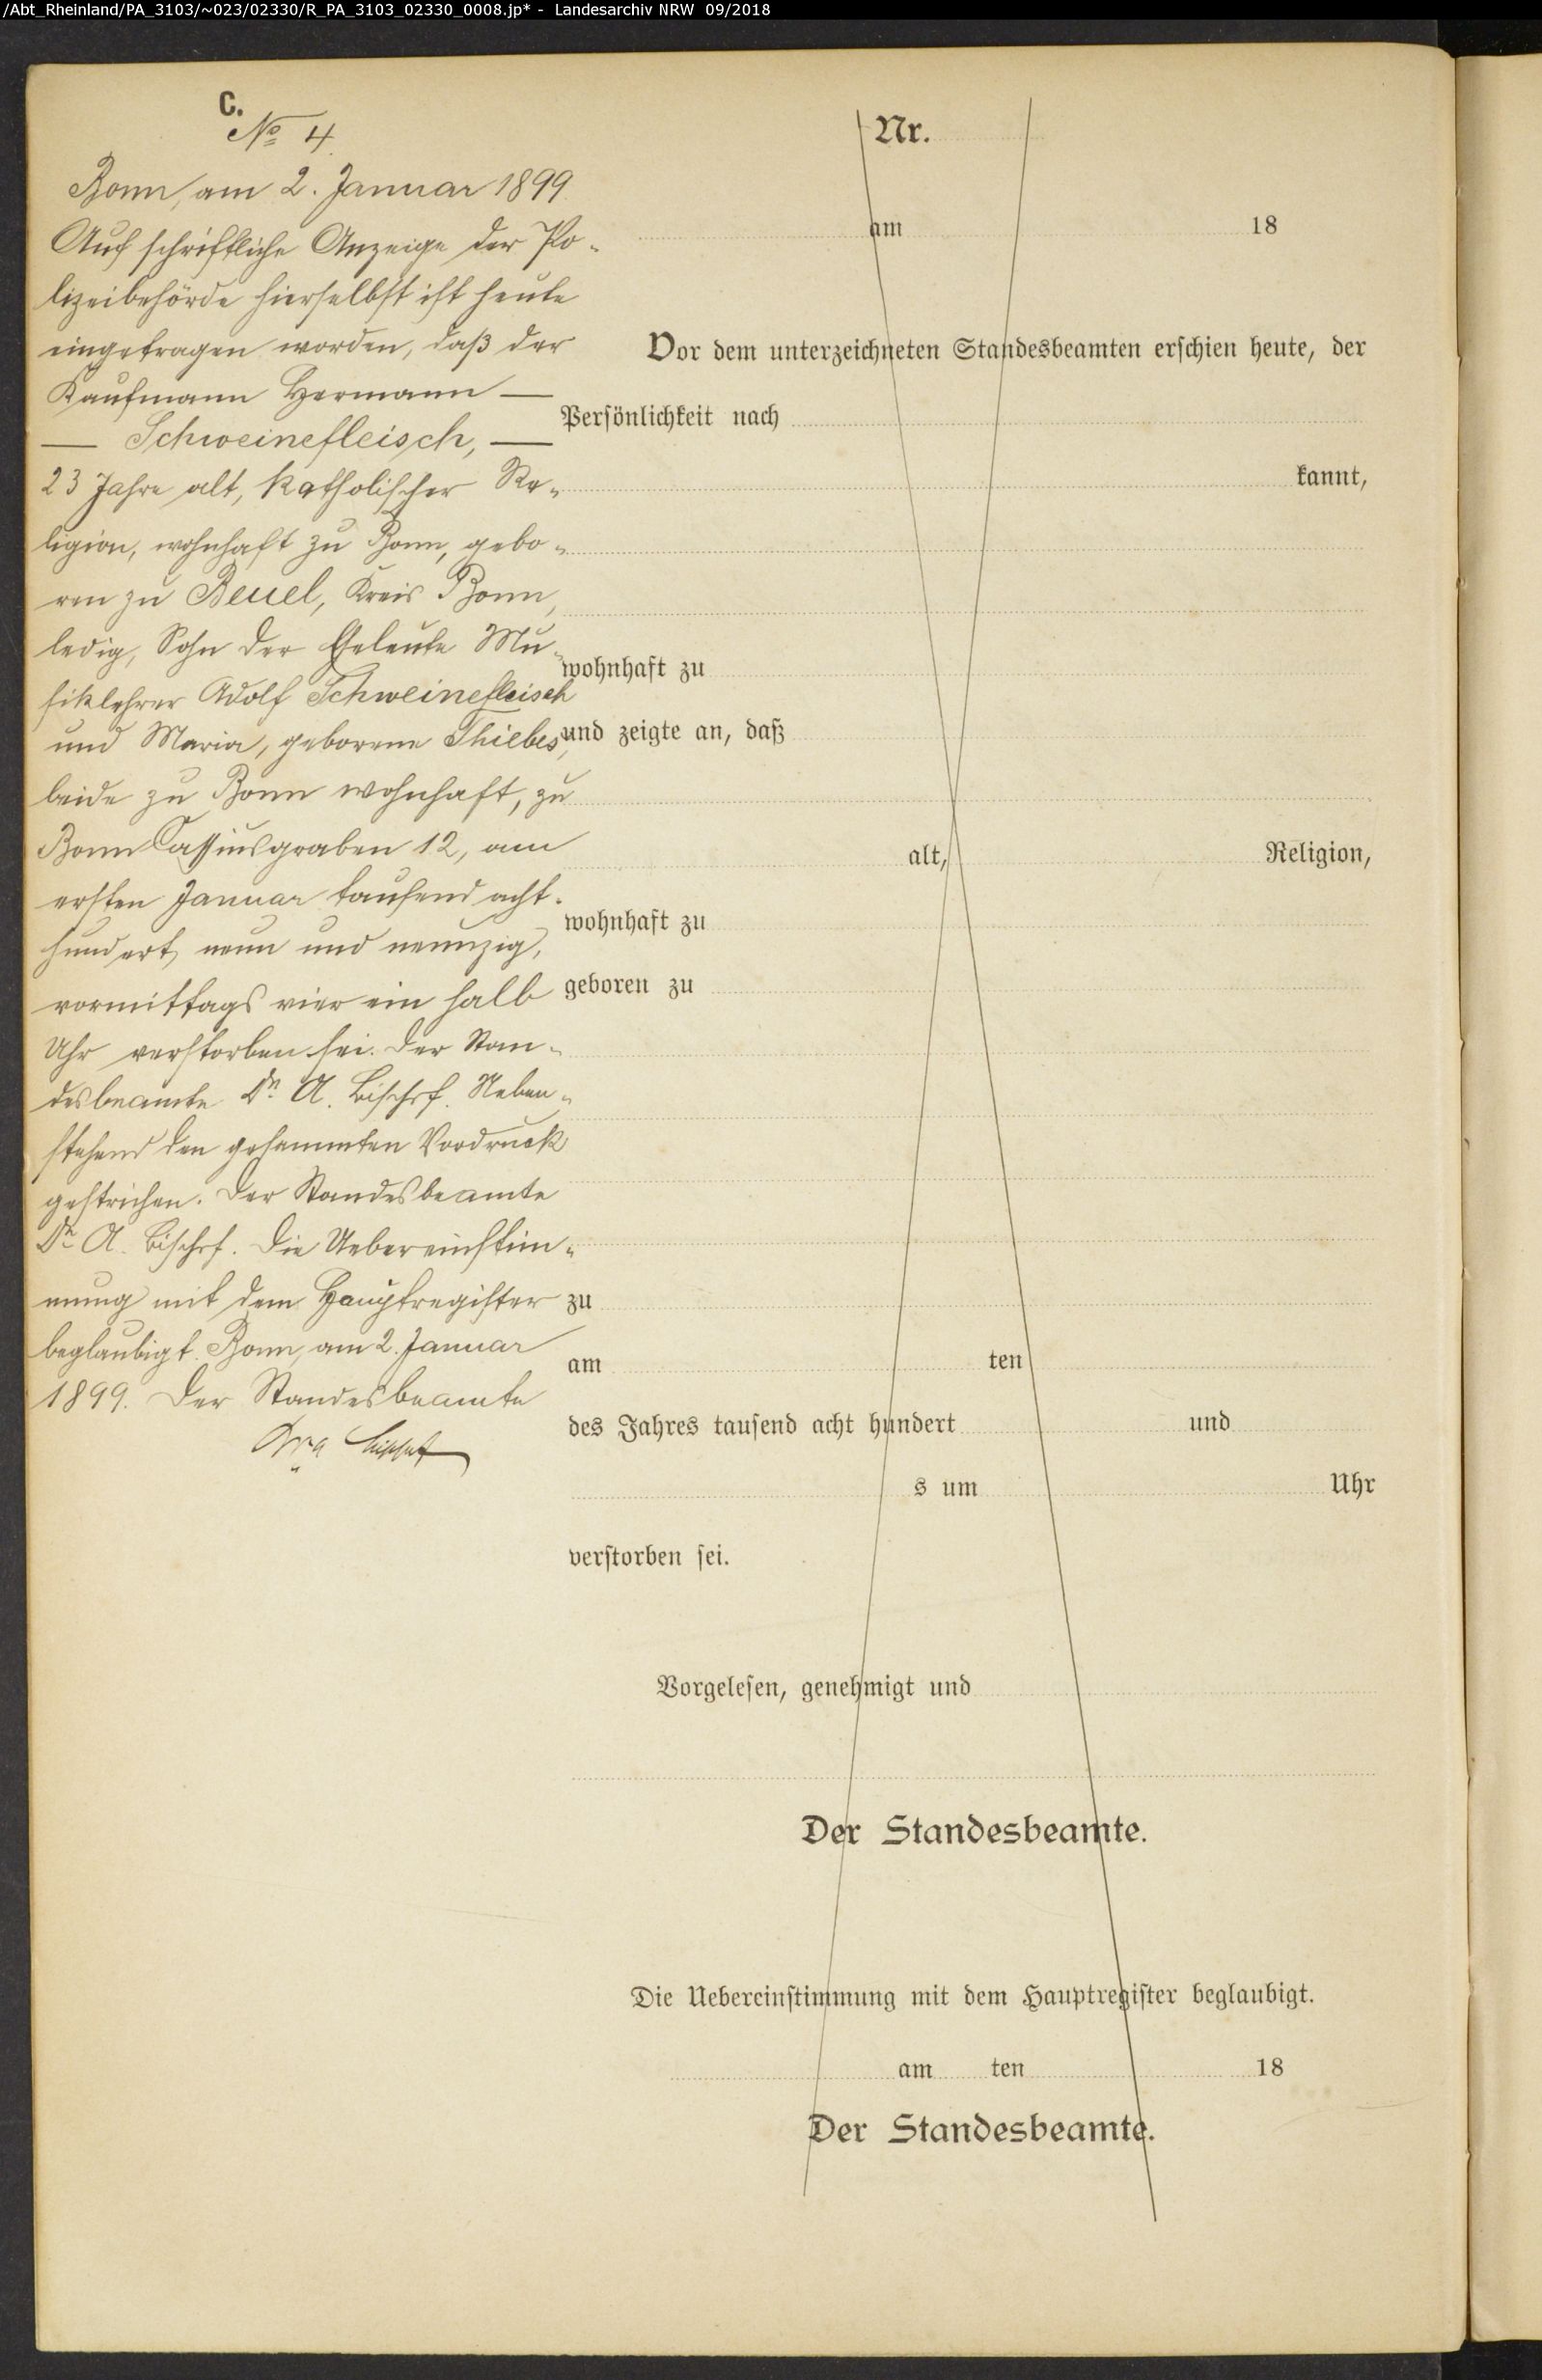 /Abt_Rheinland/PA_3103/~023/02330/R_PA_3103_02330_0008.jp* - Landesarchiv NRW 09/2018
C.
No 4
Bonn, am 2. Januar 1899
Auf schriftliche Anzeige der Po-
lizeibehörde hierselbst ist heute
eingetragen worden, daß der
Kaufmann Hermann —
— Schweinefleisch, —
23 Jahre alt, katholischer Re-
ligion, wohnhaft zu Bonn, gebo-
ren zu Beuel, Kreis Bonn,
ledig, Sohn der Eheleute Mu-
siklehrer Adolf Schweinefleisch
und Maria, geborene Thiebes,
beide zu Bonn wohnhaft, zu
Bonn Cassiusgraben 12, am
ersten Januar tausend acht-
hundert neun und neunzig,
vormittags vier ein halb
Uhr verstorben sei. Der Stan-
desbeamte Dr. A. Bischof. Neben-
stehend den gesammten Vordruck
gestrichen. Der Standesbeamte
Dr. A. Bischof. Die Uebereinstim-
mung mit dem Hauptregister
beglaubigt. Bonn, am 2. Januar
1899. Der Standesbeamte
Nr.
am 18
Vor dem unterzeichneten Standesbeamten erschien heute, der
Persönlichkeit nach
kannt,
wohnhaft zu
und zeigte an, daß
alt, Religion,
wohnhaft zu
geboren zu
zu
am ten
des Jahres tausend acht hundert und
s um Uhr
verstorben sei.
Vorgelesen, genehmigt und
Der Standesbeamte.
Die Uebereinstimmung mit dem Hauptregister beglaubigt.
am ten 18
Der Standesbeamte.